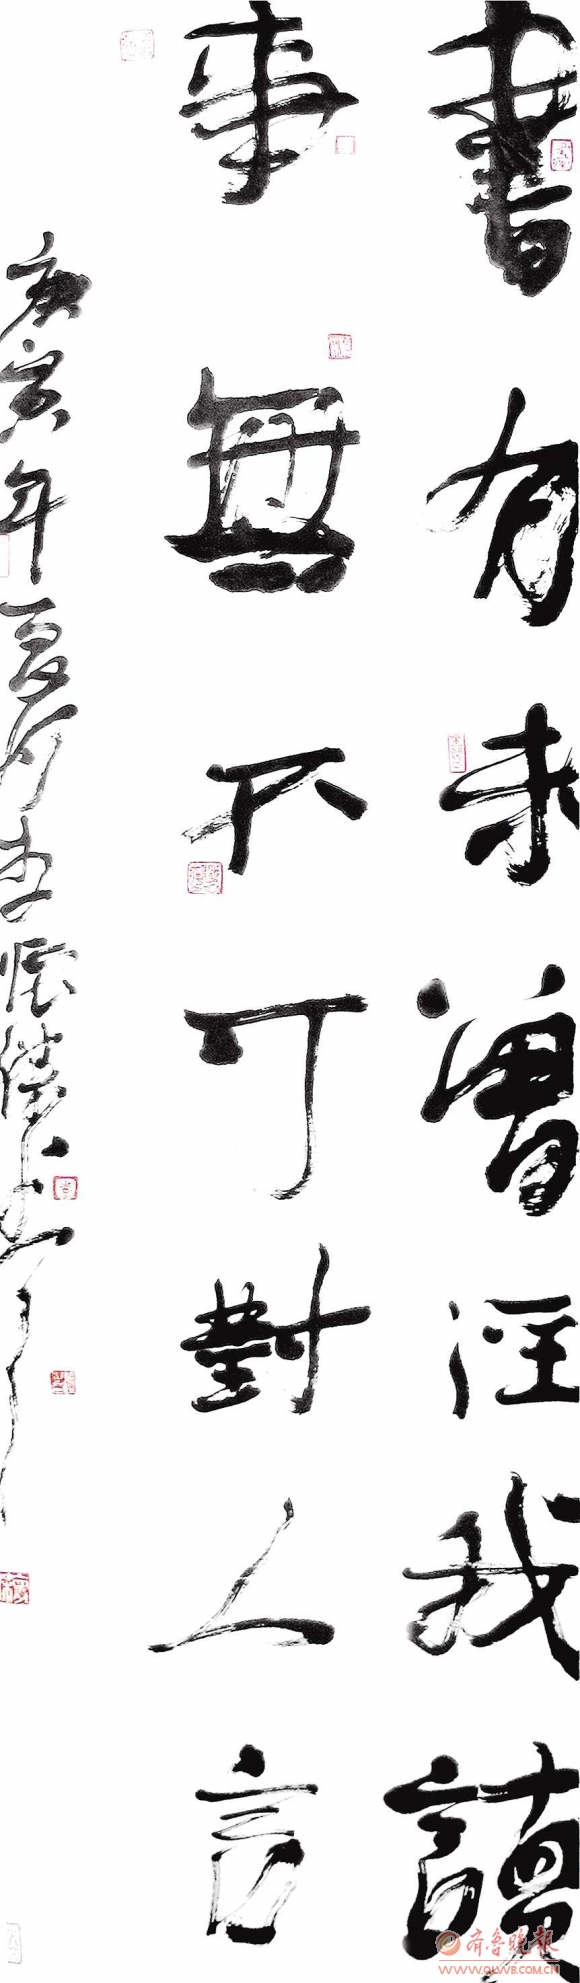 書有未曾經我讀
事無不可對人言
庚寅年夏月李
齐鲁晚报
WWW.QLWB.COM.CN